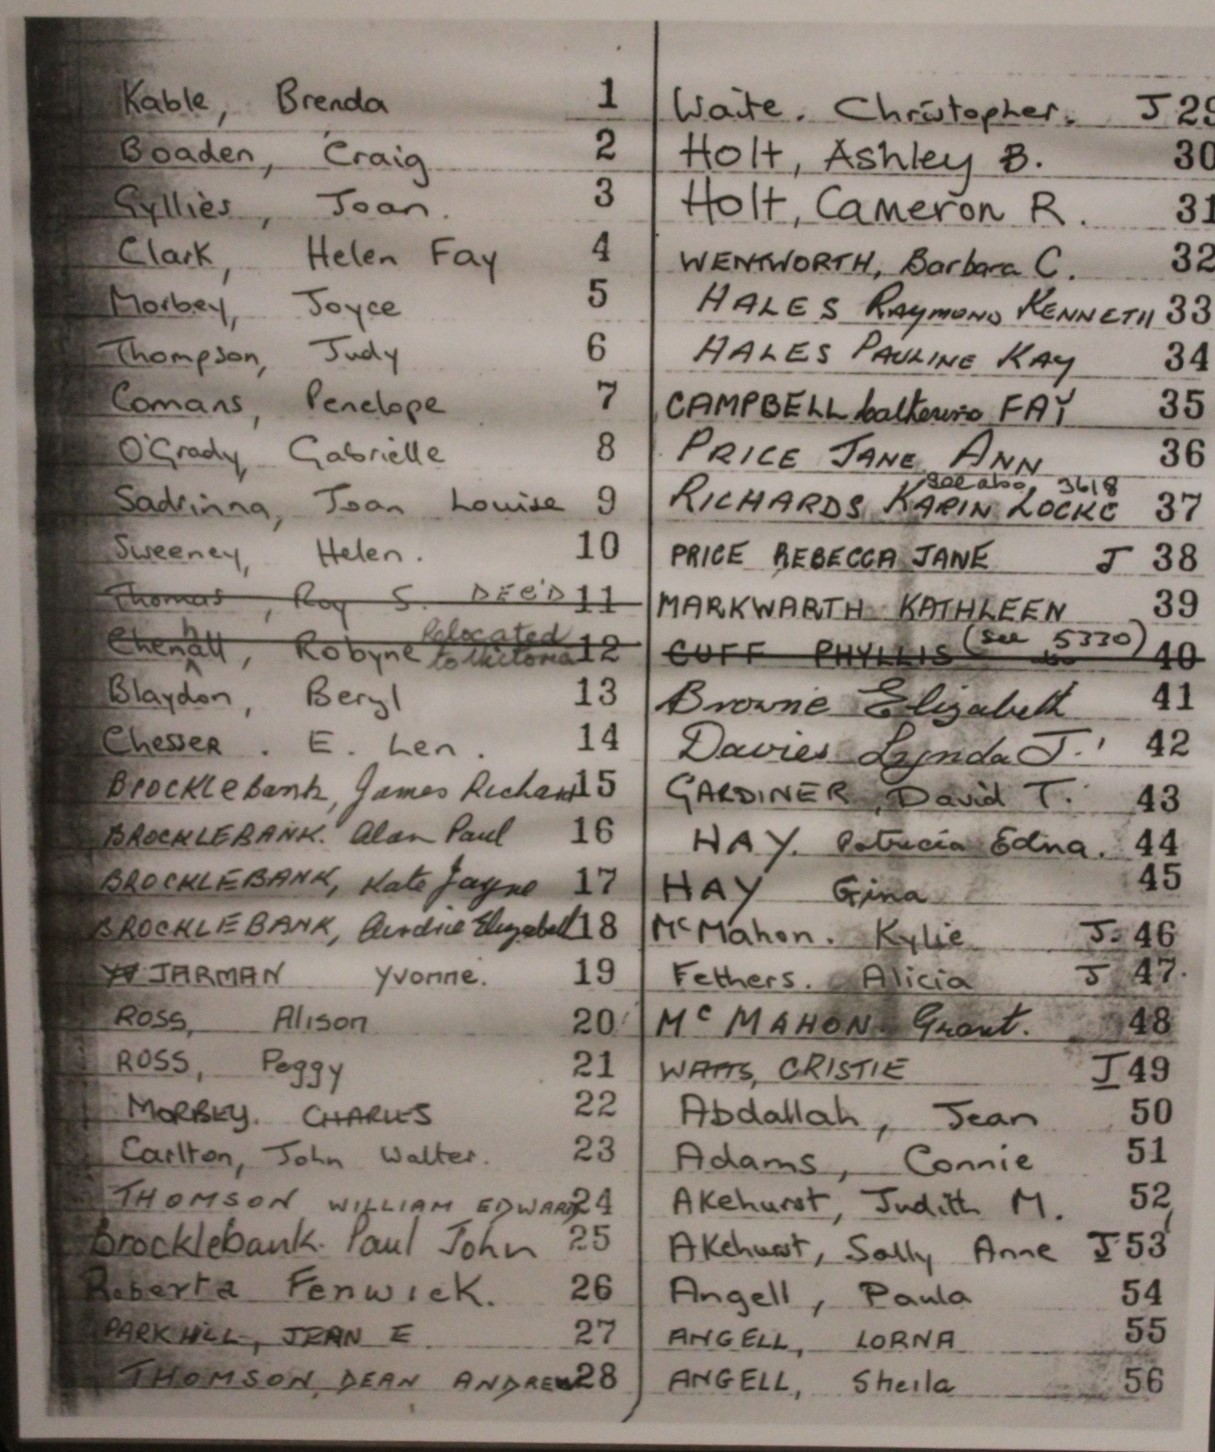 Kable, Brenda 1
Boaden, Craig 2
Gyllies, Joan. 3
Clark, Helen Fay 4
Morbey, Joyce 5
Thompson, Judy 6
Comans, Penelope 7
O'Grady, Gabrielle 8
Sadrinna, Joan Louise 9
Sweeney, Helen. 10
Thomas, Roy S. DEC'D 11
Chenhall, Robyne Relocated to Victoria 12
Blaydon, Beryl 13
Chesser. E. Len. 14
Brocklebank, James Richard 15
BROCKLEBANK. Alan Paul 16
BROCKLEBANK, Kate Jayne 17
BROCKLEBANK, Elizabeth 18
JARMAN Yvonne. 19
ROSS, Alison 20
ROSS, Peggy 21
MORBEY. CHARLES 22
Carlton, John Walter. 23
THOMSON WILLIAM EDWARD 24
Brocklebank. Paul John 25
Roberta Fenwick. 26
PARKHILL, JEAN E 27
THOMSON, DEAN ANDREW 28
Waite. Christopher. J 29
Holt, Ashley B. 30
Holt, Cameron R. 31
WENTWORTH, Barbara C. 32
HALES RAYMOND KENNETH 33
HALES PAULINE KAY 34
CAMPBELL Catherine FAY 35
PRICE JANE ANN 36
see also 3618
RICHARDS KARIN LOCKE 37
PRICE REBECCA JANE J 38
MARKWARTH KATHLEEN 39
CUFF PHYLLIS (see 5330) 40
Browne Elizabeth 41
Davies Lynda J. 42
GARDINER, David T. 43
HAY. Patricia Edna. 44
HAY Gina 45
McMahon. Kylie J. 46
Fethers. Alicia J 47
McMAHON. Grant. 48
WATTS, CRISTIE J 49
Abdallah, Jean 50
Adams, Connie 51
Akehurst, Judith M. 52
Akehurst, Sally Anne J 53
Angell, Paula 54
ANGELL, LORNA 55
ANGELL, Sheila 56